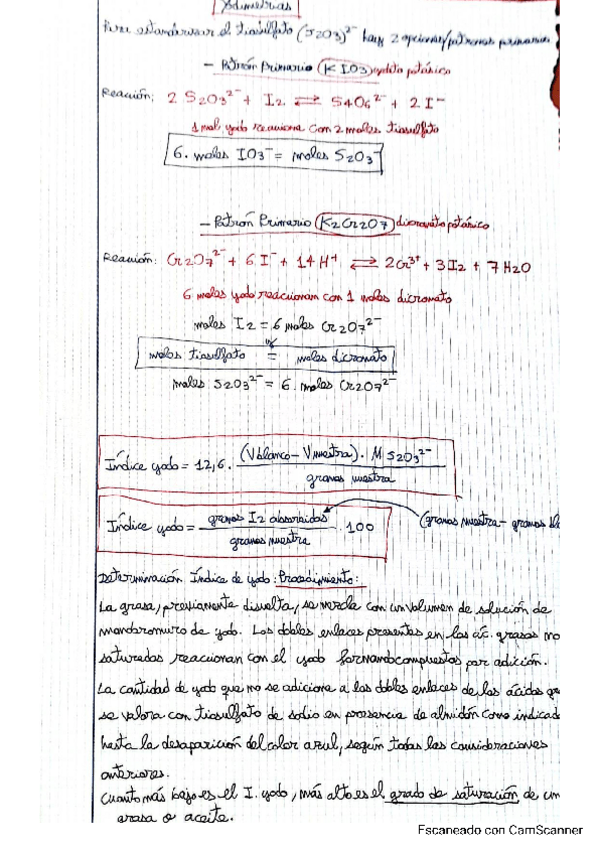 Yodimetrías
Para estandarizar el tiosulfato (S2O3)²⁻ hay 2 opciones/patrones primarios
- Patrón Primario (KIO3) yodato potásico
Reacción: 2 S2O3²⁻ + I2 ⇄ S4O6²⁻ + 2 I⁻
1 mol yodo reacciona con 2 moles tiosulfato
6. moles IO3⁻ = moles S2O3⁻
- Patrón Primario (K2Cr2O7) dicromato potásico
Reacción: Cr2O7²⁻ + 6 I⁻ + 14 H⁺ ⇄ 2 Cr³⁺ + 3 I2 + 7 H2O
6 moles yodo reaccionan con 1 moles dicromato
moles I2 = 6 moles Cr2O7²⁻
moles tiosulfato = moles dicromato
moles S2O3²⁻ = 6. moles Cr2O7²⁻
Índice yodo = 12,6 . (Vblanco - Vmuestra) . M S2O3²⁻
gramos muestra
Índice yodo = gramos I2 absorbidos . 100 (gramos muestra - gramos
gramos muestra
Determinación Índice de yodo: Procedimiento:
La grasa, previamente disuelta, se mezcla con un volumen de solución de
monobromuro de yodo. Los dobles enlaces presentes en los ác. grasos no
saturados reaccionan con el yodo formando compuestos por adición.
La cantidad de yodo que no se adiciona a los dobles enlaces de los ácidos
se valora con tiosulfato de sodio en presencia de almidón como indicad
hasta la desaparición del color azul, según todas las consideraciones
anteriores.
Cuanto más bajo es el I. yodo, más alto es el grado de saturación de un
grasa o aceite.
Escaneado con CamScanner